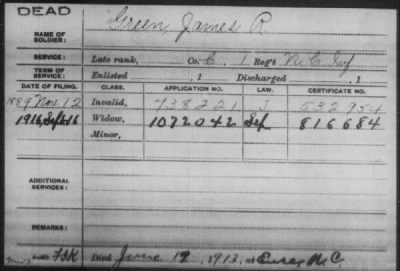 DEAD
NAME OF SOLDIER: Green, James R
SERVICE: Late rank, Co. C, 1 Reg't N.C. Inf
TERM OF SERVICE: Enlisted , 1 Discharged , 1
DATE OF FILING. CLASS. APPLICATION NO. LAW. CERTIFICATE NO.
1889 Nov. 12 Invalid, 738221 J 532954
1916, Sept 16 Widow, 1072042 Sep 816684
Minor,
ADDITIONAL SERVICES:
REMARKS:
Died June 19, 1913, at N C